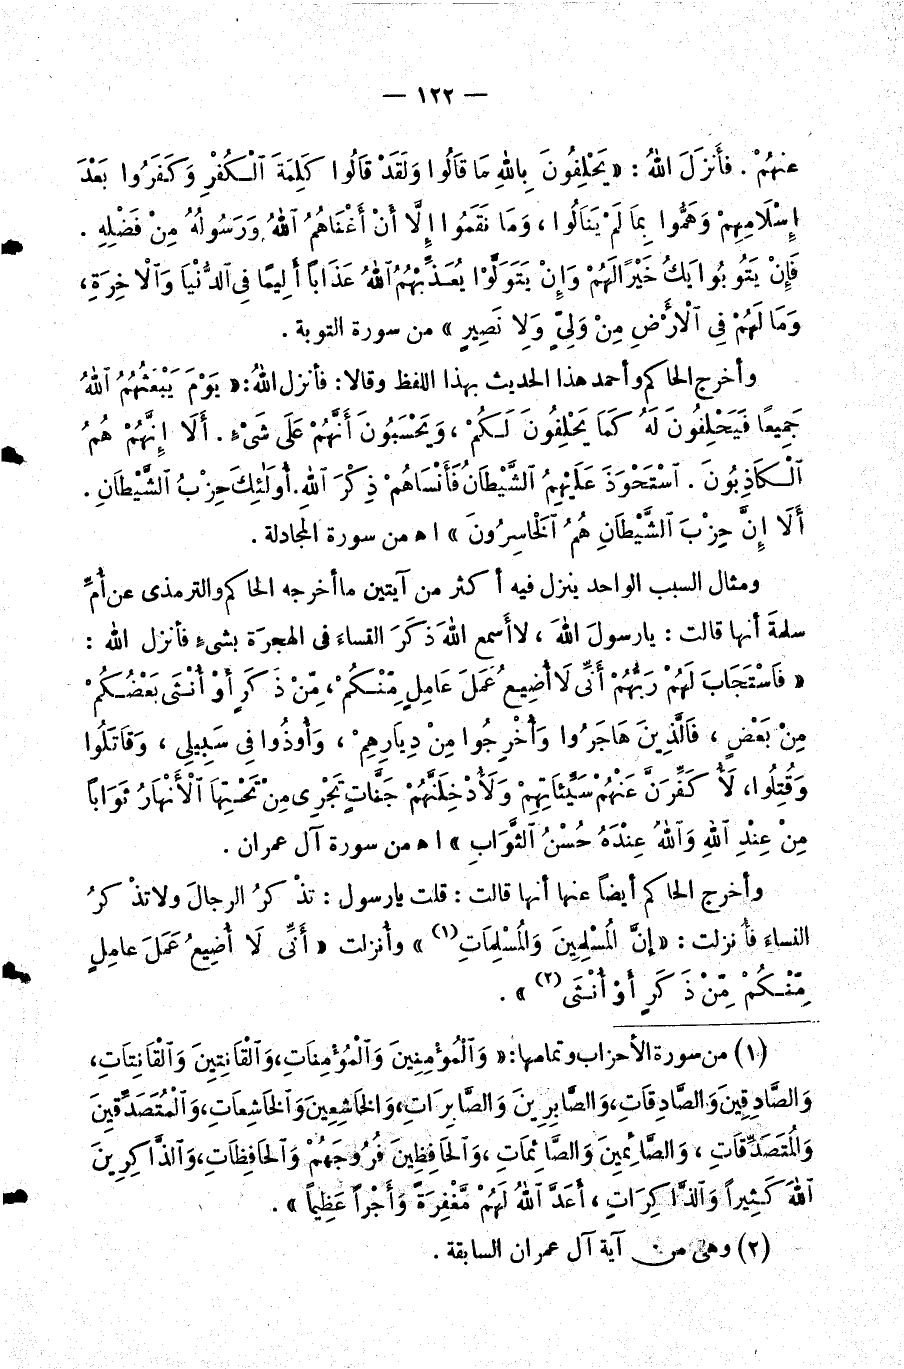 — ١٢٢ —
عنهُمْ . فأَنزَلَ اللهُ : « يَحْلِفُونَ بِاللهِ مَا قَالُوا وَلَقَدْ قَالُوا كَلِمَةَ ٱلْكُفْرِ وَكَفَرُوا بَعْدَ
إِسْلَامِهِمْ وَهَمُّوا بِمَا لَمْ يَنَالُوا ، وَمَا نَقَمُوا إِلَّا أَنْ أَغْنَاهُمُ ٱللهُ وَرَسُولُهُ مِنْ فَضْلِهِ .
فَإِنْ يَتُوبُوا يَكُ خَيْرًا لَهُمْ وَإِنْ يَتَوَلَّوْا يُعَذِّبْهُمُ ٱللهُ عَذَابًا أَلِيمًا فِي ٱلدُّنْيَا وَٱلْآخِرَةِ ،
وَمَا لَهُمْ فِي ٱلْأَرْضِ مِنْ وَلِيٍّ وَلَا نَصِيرٍ » من سورة التوبة .
وأخرج الحاكم وأحمد هذا الحديث بهذا اللفظ وقالا : فأنزل اللهُ : « يَوْمَ يَبْعَثُهُمُ ٱللهُ
جَمِيعًا فَيَحْلِفُونَ لَهُ كَمَا يَحْلِفُونَ لَكُمْ ، وَيَحْسَبُونَ أَنَّهُمْ عَلَى شَيْءٍ . أَلَا إِنَّهُمْ هُمُ
ٱلْكَاذِبُونَ . ٱسْتَحْوَذَ عَلَيْهِمُ ٱلشَّيْطَانُ فَأَنْسَاهُمْ ذِكْرَ ٱللهِ . أُولَٰئِكَ حِزْبُ ٱلشَّيْطَانِ .
أَلَا إِنَّ حِزْبَ ٱلشَّيْطَانِ هُمُ ٱلْخَاسِرُونَ » ا ه من سورة المجادلة .
ومثال السبب الواحد ينزل فيه أكثر من آيتين ما أخرجه الحاكم والترمذى عن أُمِّ
سلمةَ أنها قالت : يارسولَ اللهَ ، لا أَسمع اللهَ ذَكَرَ النساءَ فى الهجرَة بشىءٍ فأنزل الله :
« فَاسْتَجَابَ لَهُمْ رَبُّهُمْ أَنِّى لَا أُضِيعُ عَمَلَ عَامِلٍ مِّنْكُمْ ، مِّنْ ذَكَرٍ أَوْ أُنْثَى بَعْضُكُمْ
مِنْ بَعْضٍ ، فَالَّذِينَ هَاجَرُوا وَأُخْرِجُوا مِنْ دِيَارِهِمْ ، وَأُوذُوا فِي سَبِيلِي ، وَقَاتَلُوا
وَقُتِلُوا ، لَأُكَفِّرَنَّ عَنْهُمْ سَيِّئَاتِهِمْ وَلَأُدْخِلَنَّهُمْ جَنَّاتٍ تَجْرِى مِنْ تَحْتِهَا ٱلْأَنْهَارُ ثَوَابًا
مِنْ عِنْدِ ٱللهِ وَٱللهُ عِنْدَهُ حُسْنُ ٱلثَّوَابِ » ا ه من سورة آل عمران .
وأخرج الحاكم أيضاً عنها أنها قالت : قلت يارسول : تذْكرُ الرجالَ ولا تذْكرُ
النساءَ فأُنزلت : « إنَّ الْمُسْلِمِينَ وَالْمُسْلِمَاتِ (١) » وأُنزلت « أَنِّى لَا أُضِيعُ عَمَلَ عامِلٍ
مِّنْكُمْ مِّنْ ذَكَرٍ أَوْ أُنْثَى (٢) » .
(١) من سورة الأحزاب وتمامها : « وَٱلْمُؤْمِنِينَ وَٱلْمُؤْمِنَاتِ ، وَٱلْقَانِتِينَ وَٱلْقَانِتَاتِ ،
وَالصَّادِقِينَ وَالصَّادِقَاتِ ، وَالصَّابِرِينَ وَالصَّابِرَاتِ ، وَالْخَاشِعِينَ وَٱلْخَاشِعَاتِ ، وَٱلْمُتَصَدِّقِينَ
وَالْمُتَصَدِّقَاتِ ، وَالصَّائِمِينَ وَالصَّائِمَاتِ ، وَٱلْحَافِظِينَ فُرُوجَهُمْ وَٱلْحَافِظَاتِ ، وَٱلذَّاكِرِينَ
ٱللهَ كَثِيراً وَٱلذَّاكِرَاتِ ، أَعَدَّ ٱللهُ لَهُمْ مَغْفِرَةً وَأَجْراً عَظِيماً » .
(٢) وهى من آية آل عمران السابقة .